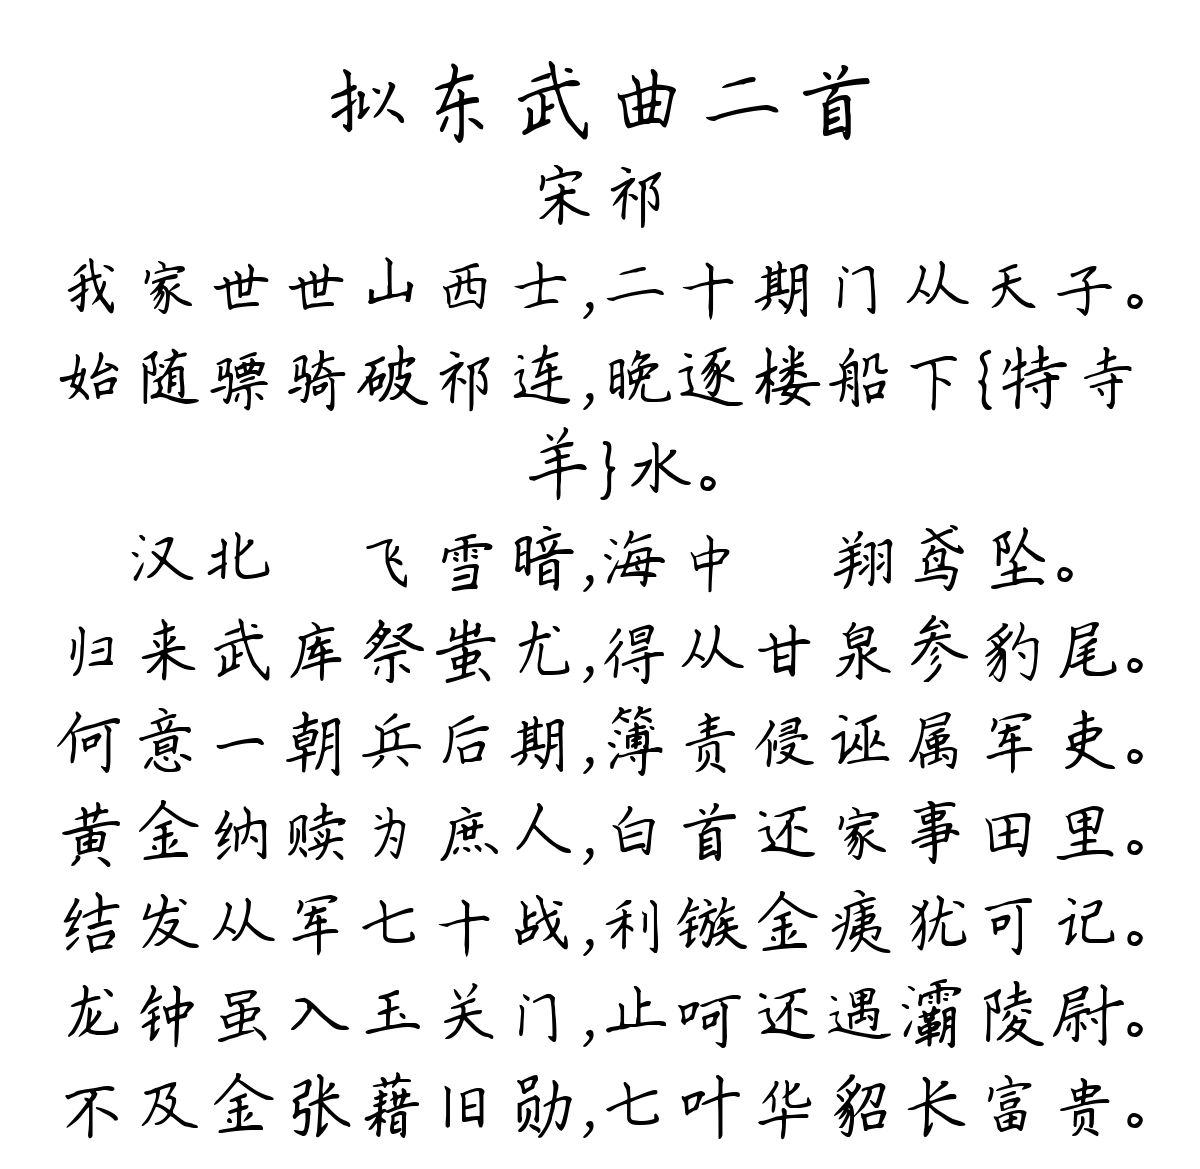 拟东武曲二首
宋祁
我家世世山西士,二十期门从天子。
始随骠骑破祁连,晚逐楼船下{特寺
羊}水。
汉北　飞雪暗,海中　翔鸢坠。
归来武库祭蚩尤,得从甘泉参豹尾。
何意一朝兵后期,簿责侵诬属军吏。
黄金纳赎为庶人,白首还家事田里。
结发从军七十战,利镞金痍犹可记。
龙钟虽入玉关门,止呵还遇灞陵尉。
不及金张藉旧勋,七叶华貂长富贵。